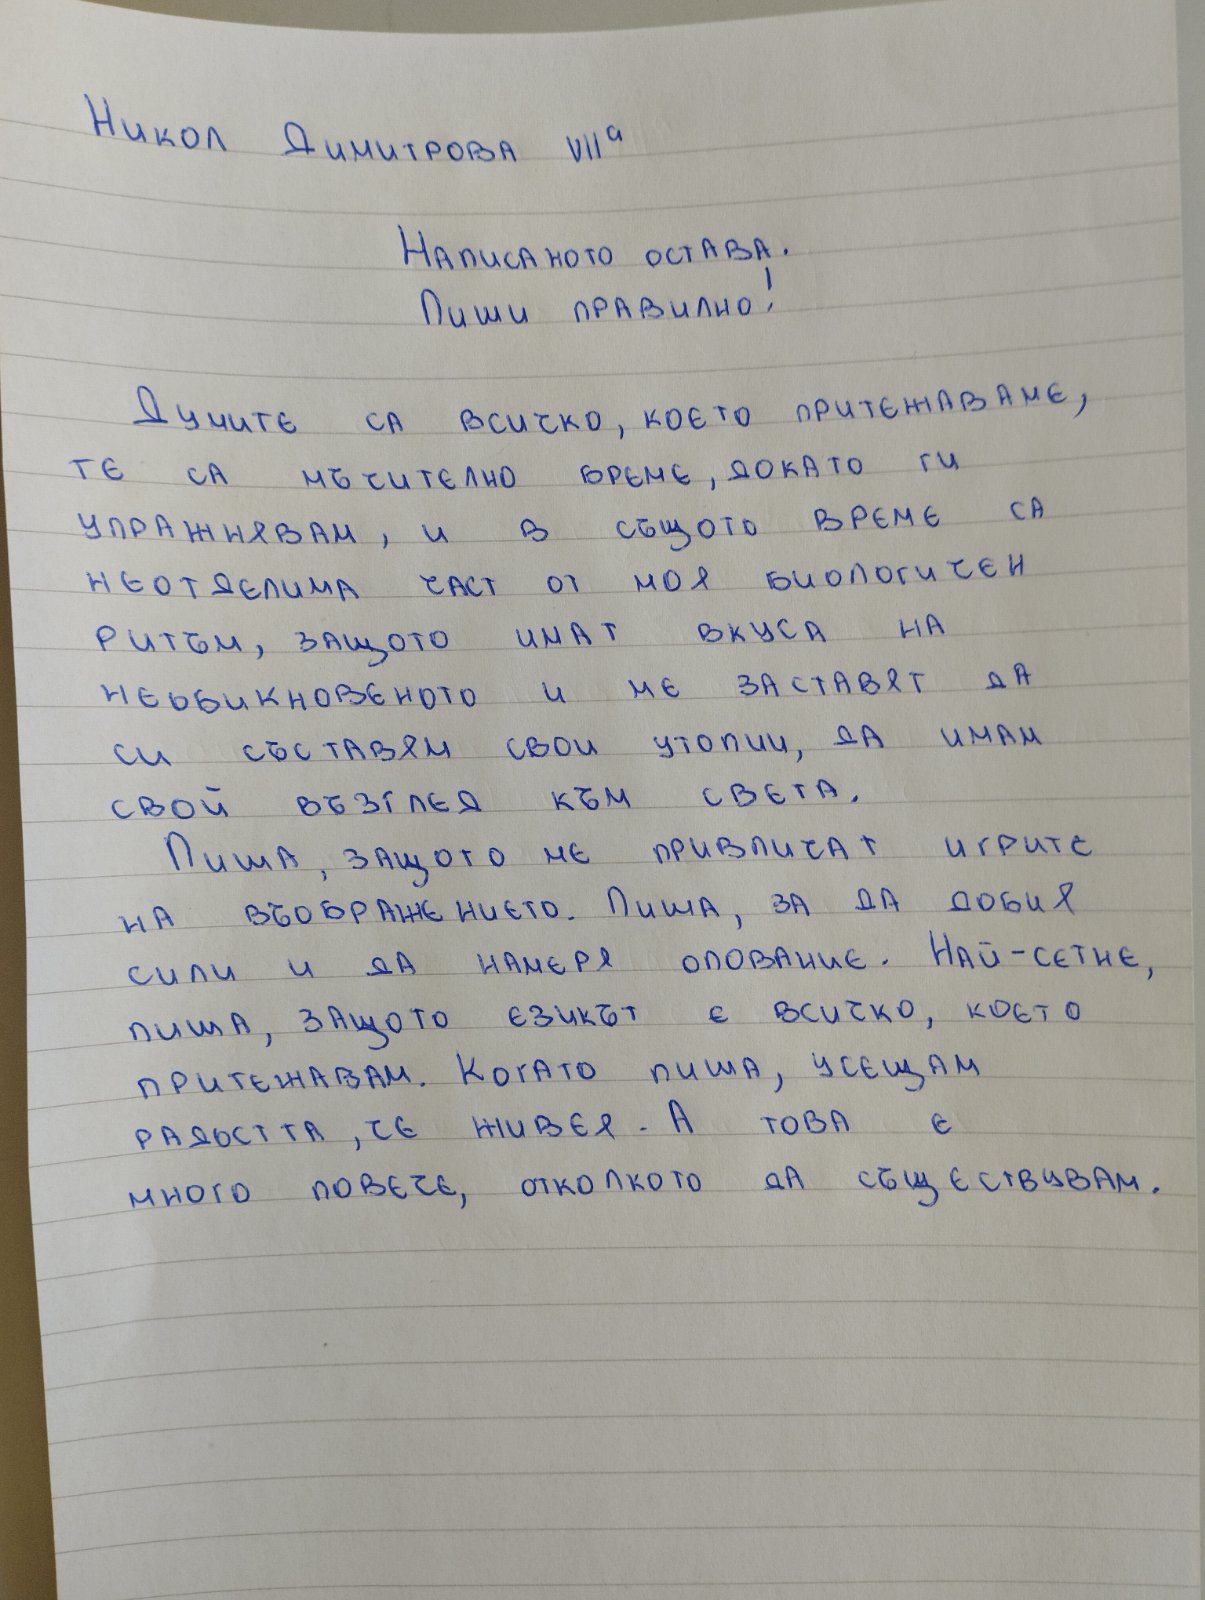 Никол Димитрова VIIа
Написаното остава.
Пиши правилно!
Думите са всичко, което притежаваме,
те са мъчително бреме, докато ги
упражнявам, и в същото време са
неотделима част от моя биологичен
ритъм, защото имат вкуса на
необикновеното и ме заставят да
си съставям свои утопии, да имам
свой възглед към света.
Пиша, защото ме привличат игрите
на въображението. Пиша, за да добия
сили и да намеря опование. Най-сетне,
пиша, защото езикът е всичко, което
притежавам. Когато пиша, усещам
радостта, че живея. А това е
много повече, отколкото да съществувам.